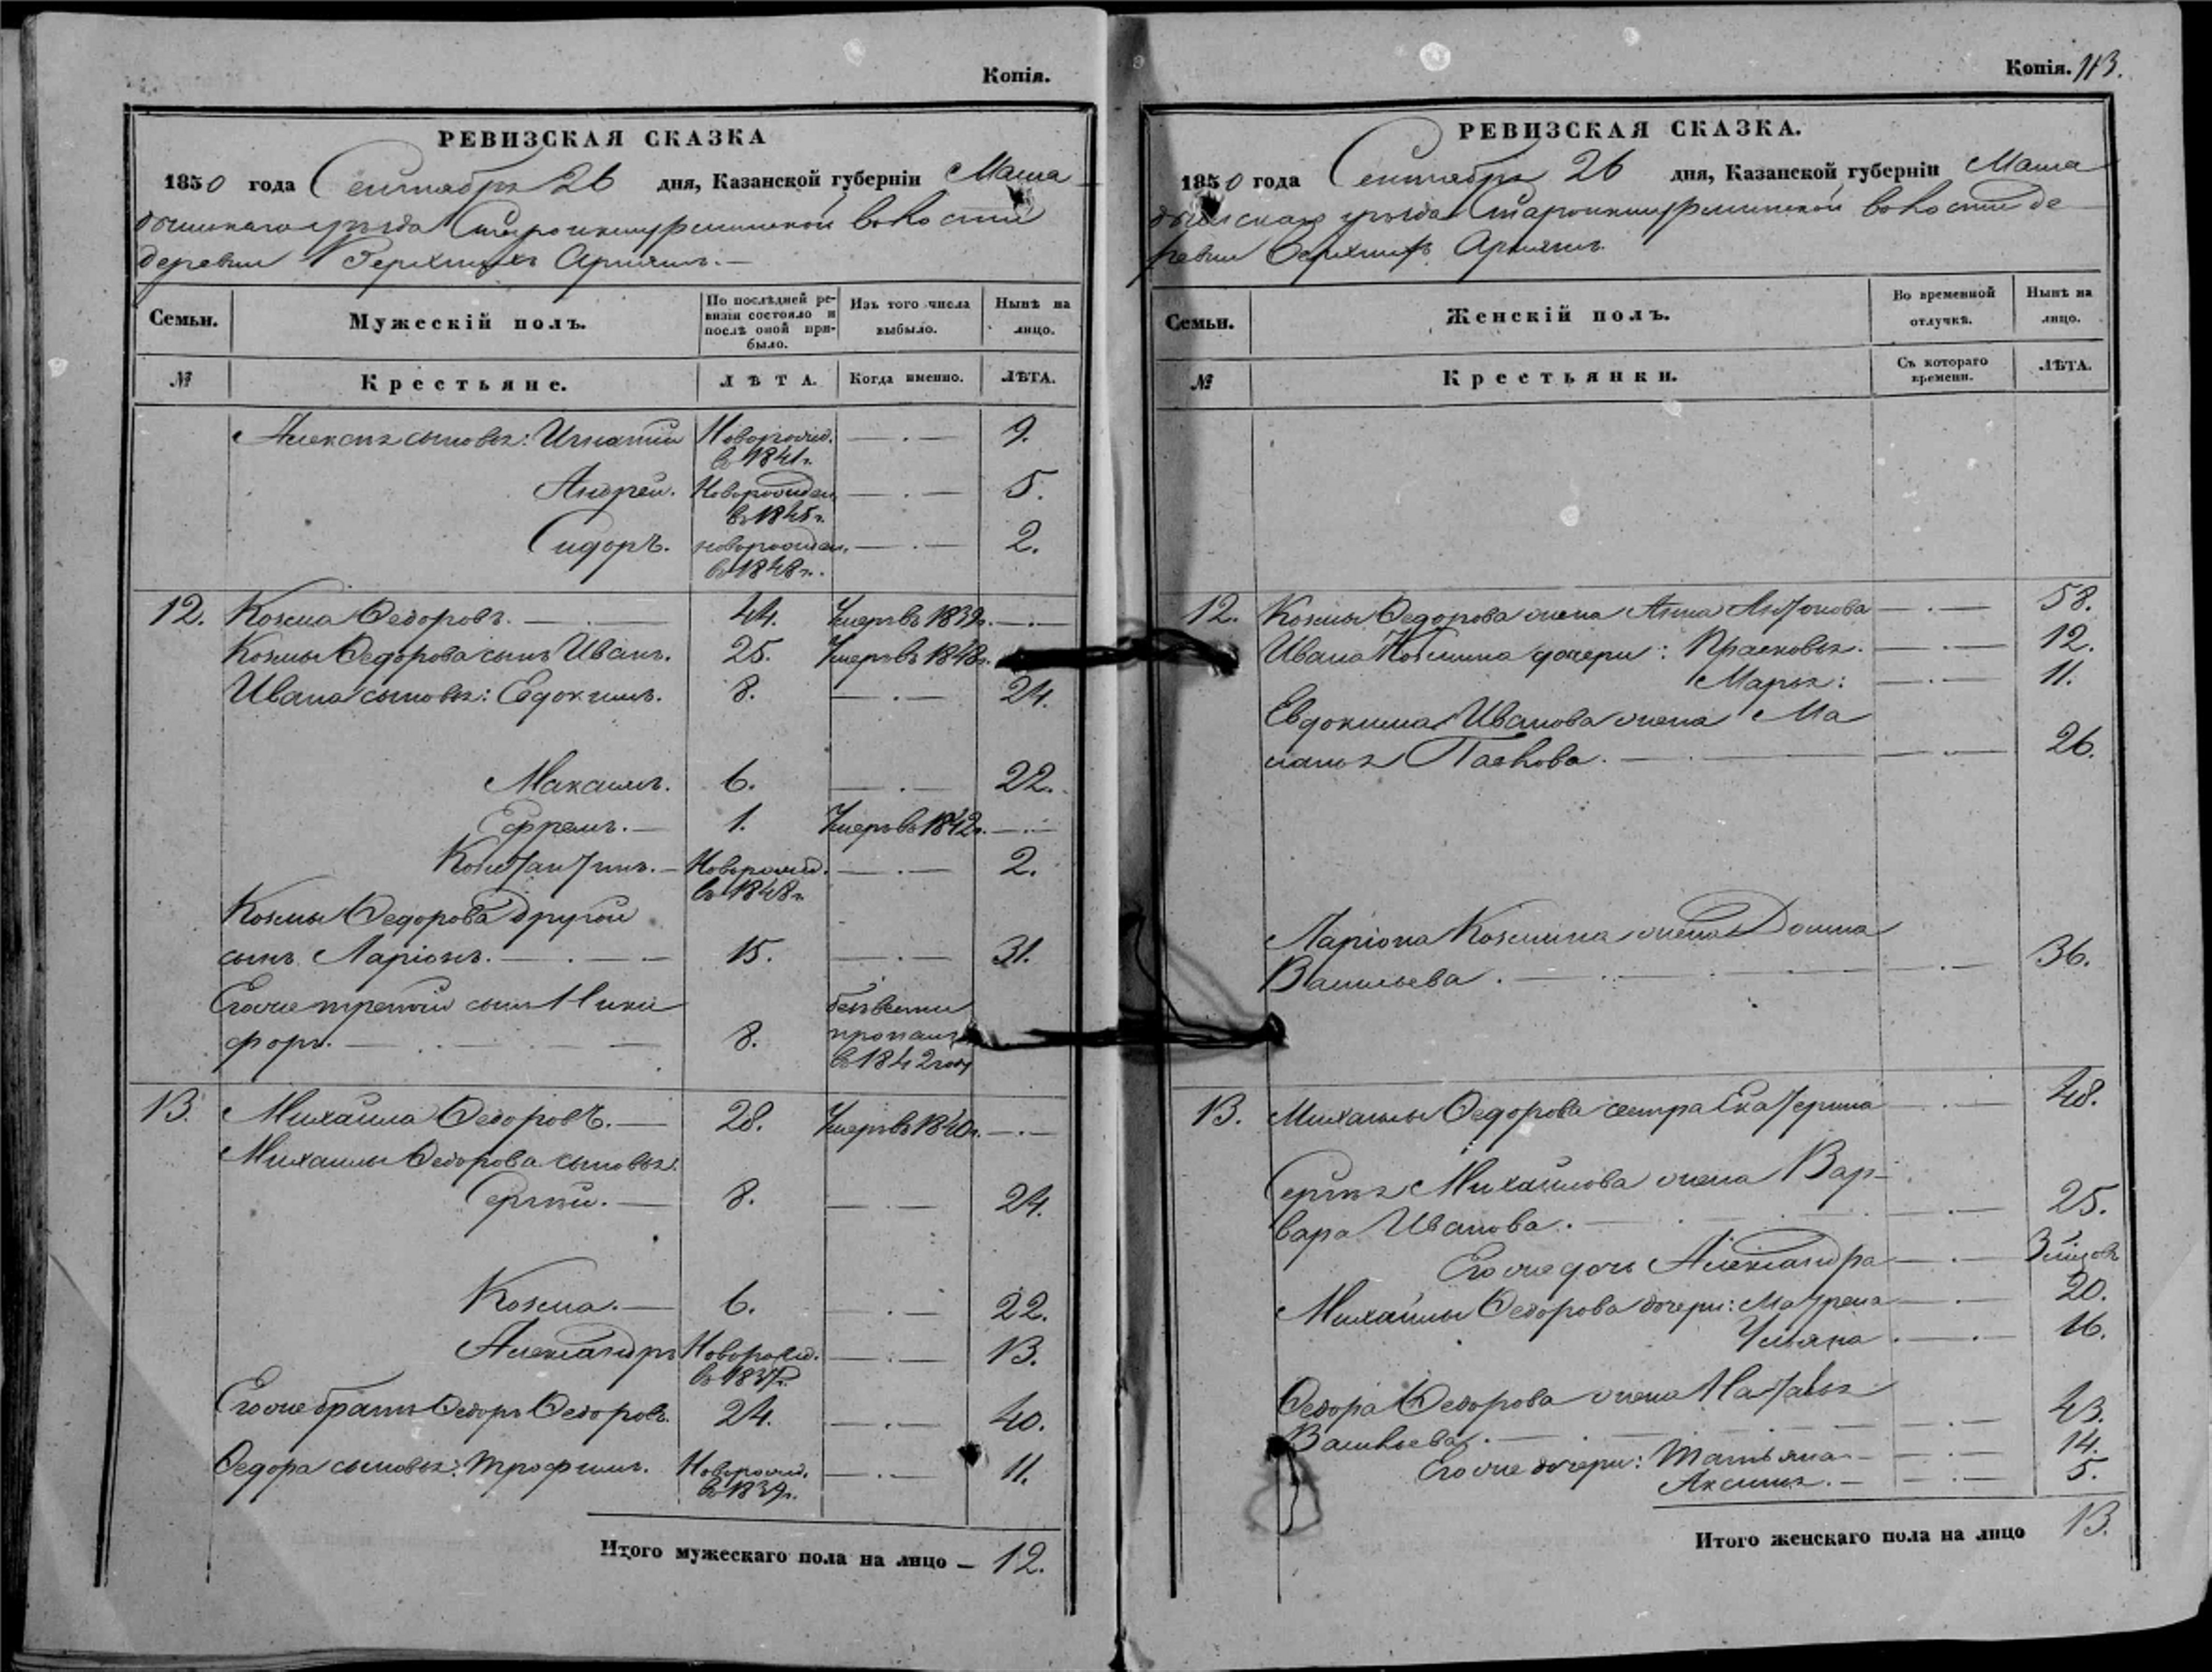 Копія.
РЕВИЗСКАЯ СКАЗКА
1850 года Сентября 26 дня, Казанской губерніи Мама
дышскаго уѣзда волости
деревни Верхнихъ
Семьи.
Мужескій полъ.
По послѣдней ре-
визіи состояло и
послѣ оной при-
было.
Изъ того числа
выбыло.
Нынѣ на
лицо.
№
Крестьяне.
ЛѢТА.
Когда именно.
ЛѢТА.
Алексѣя сыновья: Игнатій Новорожд. — . — 9.
въ 1841 г.
Андрей. Новорожден. — . — 5.
въ 1845 г.
Сидоръ. новорожден. — . — 2.
въ 1848 г.
12. Козма Ѳедоровъ. — . — 44. Умеръ въ 1839 г. — . —
Козмы Ѳедорова сынъ Иванъ. 25. Умеръ въ 1848 г.
Ивана сыновья: Евдокимъ. 8. — . — 24.
Максимъ. 6. — . — 22.
Ефремъ. — 1. Умеръ въ 1842 г. — . —
Константинъ. — Новорожд. — . — 2.
въ 1848 г.
Козмы Ѳедорова другой
сынъ Ларіонъ. — . — 15. — . — 31.
Его же третій сынъ Ники
форъ. — . — . — 8. безвѣстно
пропалъ
въ 1842 году
13. Михайла Ѳедоровъ. — 28. Умеръ въ 1840 г. — . —
Михайлы Ѳедорова сыновья:
Сергѣй. — 8. — . — 24.
Козма. — 6. — . — 22.
Александръ Новорожд. — . — 13.
въ 1837 г.
Его же братъ Ѳедоръ Ѳедоровъ. 24. — . — 40.
Ѳедора сыновья: Трофимъ. Новорожд. — . — 11.
въ 1839 г.
Итого мужескаго пола на лицо — 12.
Копія. 113.
РЕВИЗСКАЯ СКАЗКА.
1850 года Сентября 26 дня, Казанской губерніи Мама
дышскаго уѣзда волости де
ревни Верхнихъ
Семьи.
Женскій полъ.
Во временной
отлучкѣ.
Нынѣ на
лицо.
№
Крестьянки.
Съ котораго
времени.
ЛѢТА.
12. Козмы Ѳедорова жена Анна Антонова — . — 58.
Ивана Козмина дочери: Прасковья. — . — 12.
Марья: — . — 11.
Евдокима Иванова жена Ма
ланья Павлова. — . — 26.
Ларіона Козмина жена Домна
Васильева. — . — 36.
13. Михайлы Ѳедорова сестра Екатерина — . — 48.
Сергѣя Михайлова жена Вар-
вара Иванова. — . — 25.
Его же дочь Александра — . —
Михайлы Ѳедорова дочери: Матрена — . — 20.
Ульяна. — . — 16.
Ѳедора Ѳедорова жена Наталья
Васильева. — . — 43.
Его же дочери: Татьяна — — . — 14.
Аксинья. — — . — 5.
Итого женскаго пола на лицо 13.